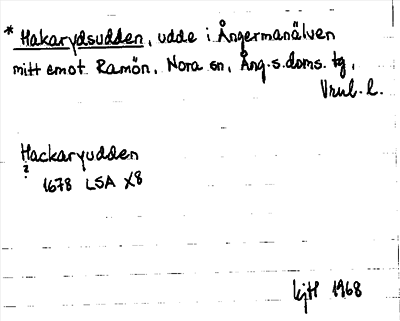 * Hakarydsudden, udde i Ångermanälven
mitt emot Ramön, Nora sn, Ång. s. doms. tg,
Vnul. l.
Hackaryudden
?
1678 LSA X8
kjH 1968